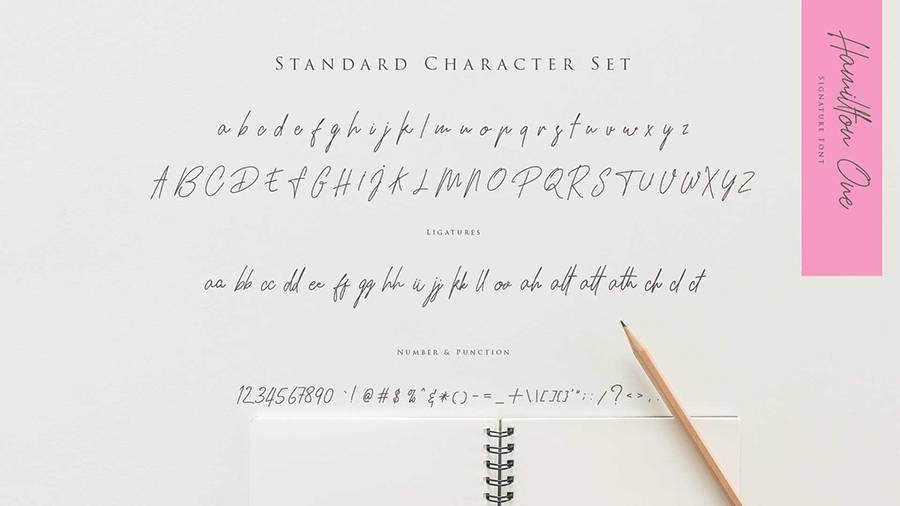 STANDARD CHARACTER SET
a b c d e f g h i j k l m n o p q r s t u v w x y z
A B C D E F G H I J K L M N O P Q R S T U V W X Y Z
LIGATURES
aa bb cc dd ee ff gg hh ii jj kk ll oo ah alt att ath ch cl ct
NUMBER & PUNCTION
1234567890 `! @ # $ % ^ & * ( ) - = _ + \ | [ ] { } ' " ; : / ? < > , .
Hamilton One
SIGNATURE FONT